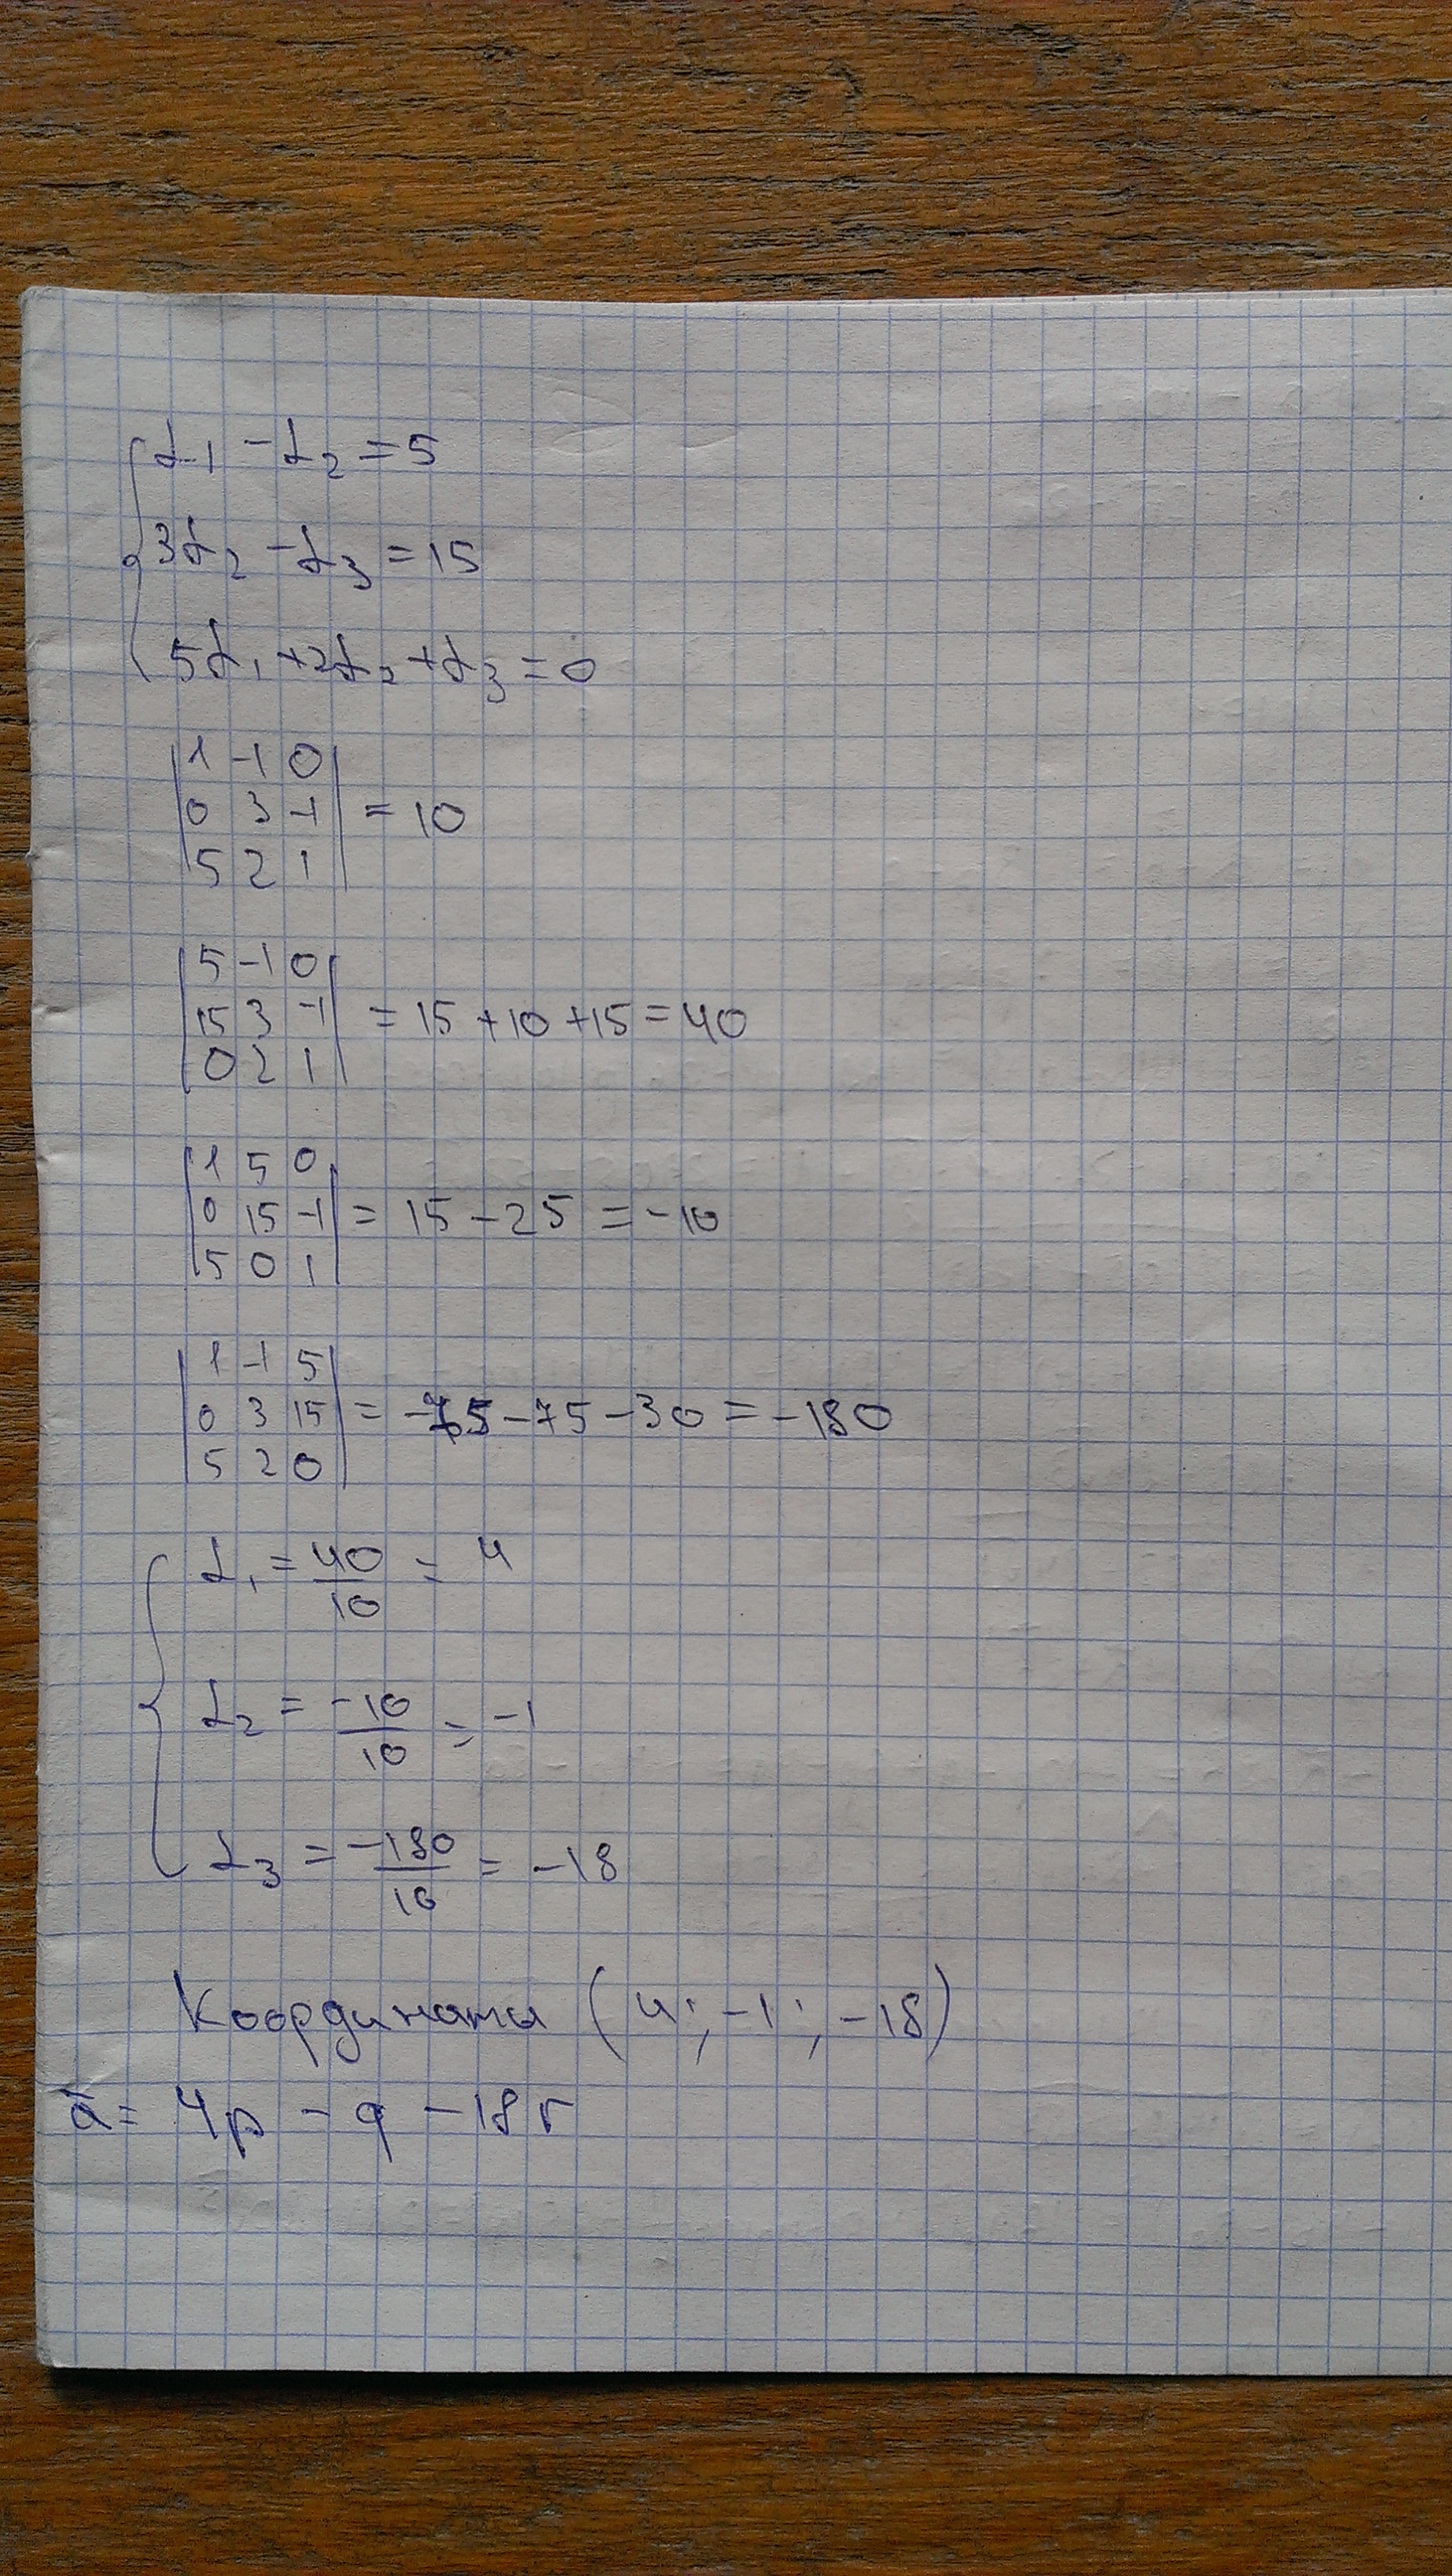 α₁ - α₂ = 5
3α₂ - α₃ = 15
5α₁ + 2α₂ + α₃ = 0
|1 -1 0|
|0 3 -1| = 10
|5 2 1|
|5 -1 0|
|15 3 -1| = 15 + 10 + 15 = 40
|0 2 1|
|1 5 0|
|0 15 -1| = 15 - 25 = -10
|5 0 1|
|1 -1 5|
|0 3 15| = -75 - 75 - 30 = -180
|5 2 0|
α₁ = 40/10 = 4
α₂ = -10/10 = -1
α₃ = -180/10 = -18
Координаты (4; -1; -18)
a̅ = 4p - q - 18r